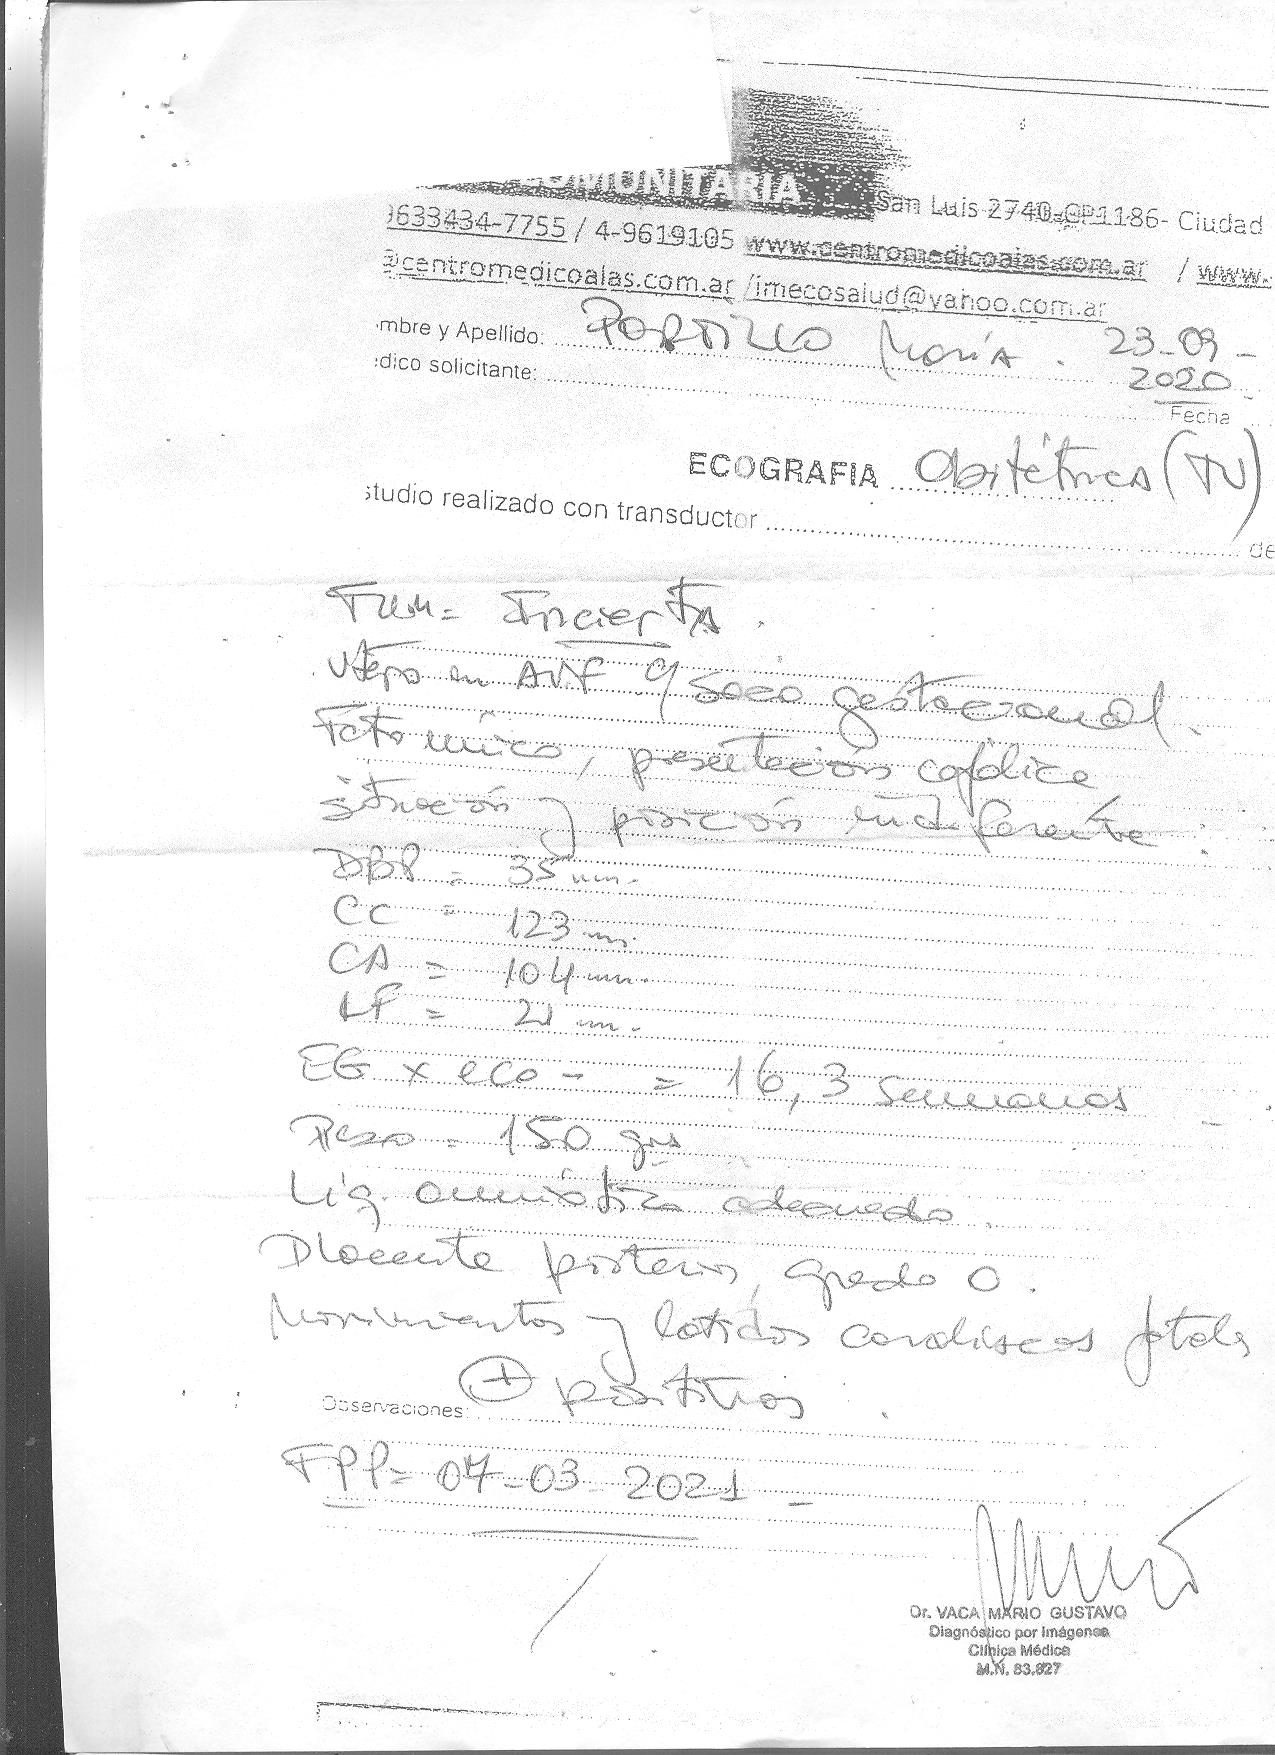 COMUNITARIA
San Luis 2740-CP1186- Ciudad
9633434-7755 / 4-9619105 www.centromedicoalas.com.ar / www.
@centromedicoalas.com.ar /imecosalud@yahoo.com.ar
mbre y Apellido: PORTILLO María. 23-09-
2020
dico solicitante:
Fecha
ECOGRAFIA Obstétrica (TV)
studio realizado con transductor de
FUM= Incierta.
Utero en AVF c/ saco gestacional.
Feto único, presentación cefálica
situación y posición indiferente:
DBP = 35 mm.
CC = 123 mm.
CA = 104 mm.
LF = 21 mm.
EG x eco - = 16,3 semanas
Peso = 150 grs
Liq. amniótico adecuado.
Placenta posterior, grado 0.
Movimientos y latidos cardíacos fetales
+ positivos.
Observaciones:
FPP= 07-03-2021-
Dr. VACA MARIO GUSTAVO
Diagnóstico por Imágenes
Clínica Médica
M.N. 83.827